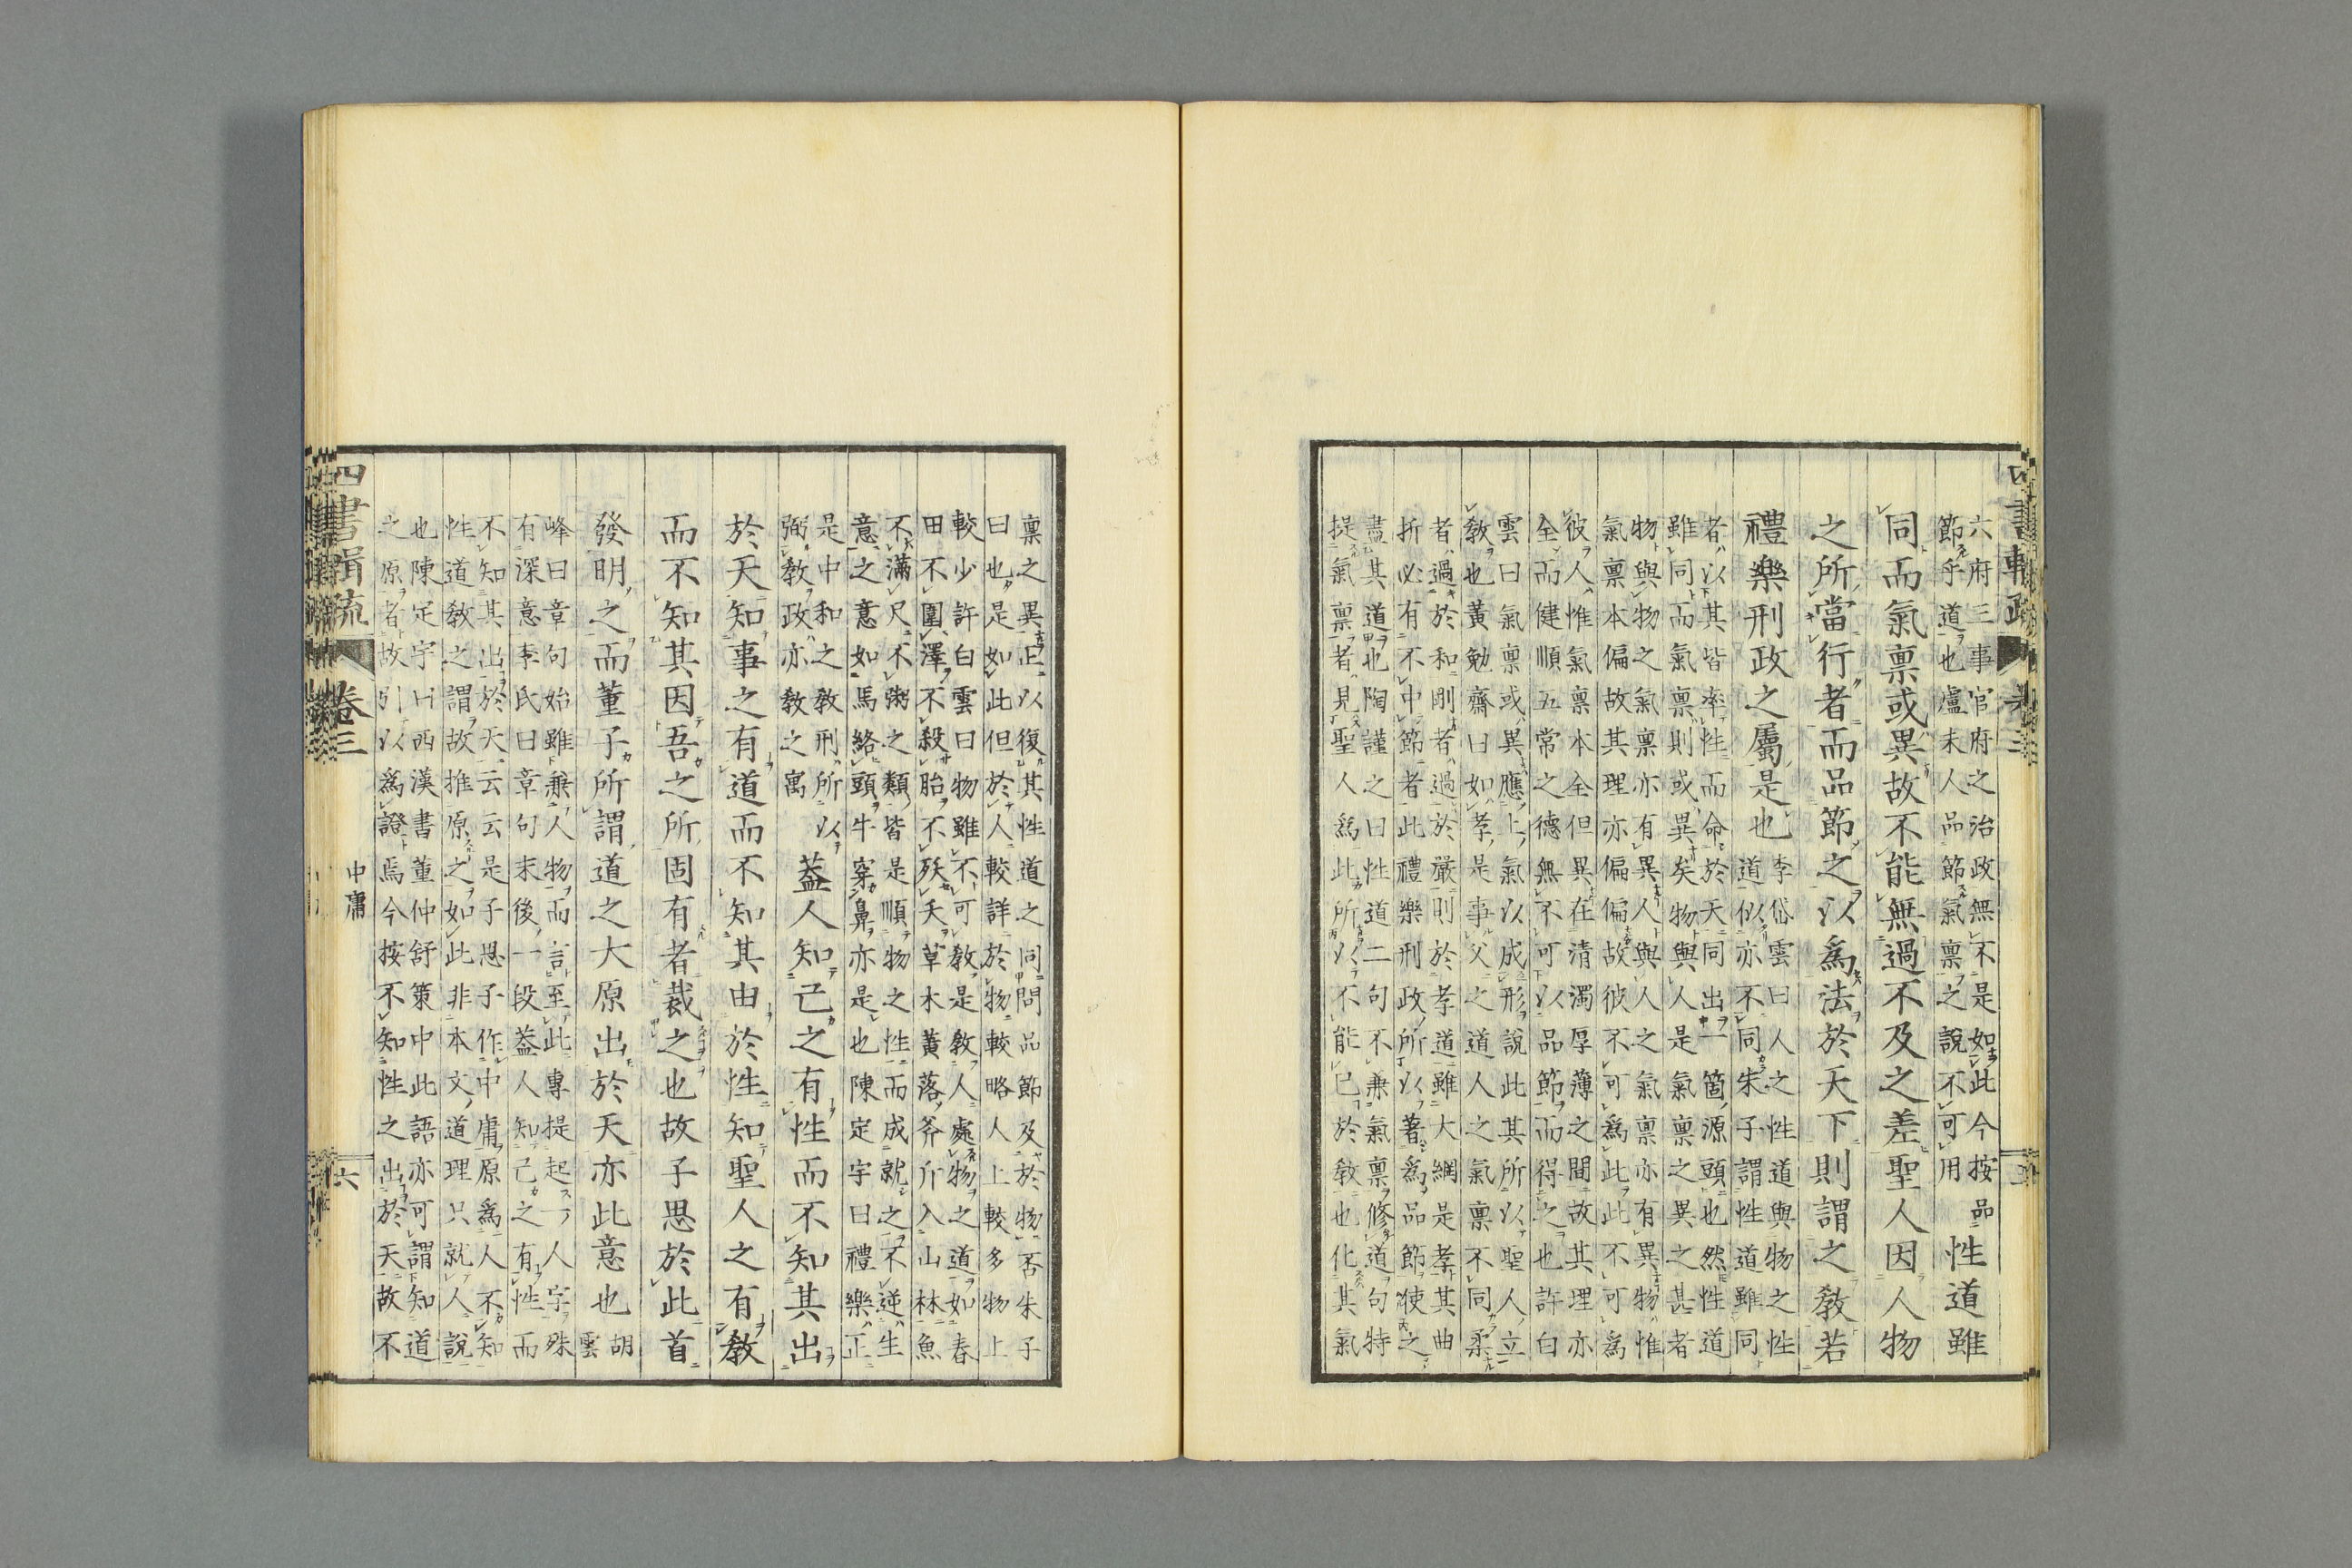 六府三事官府之治政無不是如此今按品
節乎道也盧未人品節氣禀之說不可用
性道雖
同而氣禀或異故不能無過不及之差聖人因人物
之所當行者而品節之以爲法於天下則謂之教若
禮樂刑政之屬是也
李岱雲曰人之性道與物之性
道似亦不同朱子謂性道雖同
者以其皆率性而命於天同出一箇源頭也然性道
雖同而氣禀則或異矣物與人是氣禀之異之甚者
物與物之氣禀亦有異人與人之氣禀亦有異物惟
氣禀本偏故其理亦偏偏故彼不可爲此此不可爲
彼人惟氣禀本全但異在清濁厚薄之間故其理亦
全而健順五常之德無不可以品節而得之也許白
雲曰氣禀或異應上氣以成形說此其所以聖人立
教也黃勉齋曰如孝是事父之道人之氣禀不同柔
者過於和剛者過於嚴則於孝道雖大綱是孝其曲
折必有不中節者此禮樂刑政所以著爲品節使之
盡其道也陶謹之曰性道二句不兼氣禀修道句特
提氣禀者見聖人爲此所以不能已於教也化其氣
禀之異正以復其性道之同問品節及於物否朱子
曰也是如此但於人較詳於物較略人上較多物上
較少許白雲曰物雖不可教是教人處物之道如春
田不圍澤不殺胎不殀夭草木黃落斧斤入山林魚
不滿尺不粥之類皆是順物之性而成就之不逆生
意之意如馬絡頭牛穿鼻亦是也陳定宇曰禮樂正
是中和之教刑所以
弼教政亦教之寓
葢人知己之有性而不知其出
於天知事之有道而不知其由於性知聖人之有教
而不知其因吾之所固有者裁之也故子思於此首
發明之而董子所謂道之大原出於天亦此意也
胡
雲
峰曰章句始雖兼人物而言至此專提起一人字殊
有深意李氏曰章句末後一段葢人知己之有性而
不知其出於天云云是子思子作中庸原爲人不知
性道教之謂故推原之如此非本文道理只就人說
也陳定宇曰西漢書董仲舒策中此語亦可謂知道
之原者故引以爲證焉今按不知性之出於天故不
四書輯疏
卷三
中庸
六